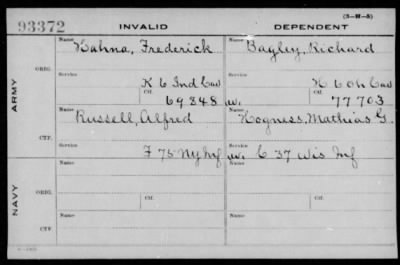 (3-M-5)
93372 INVALID DEPENDENT
ARMY
ORIG.
Name Hahna, Frederick
Name Bagley, Richard
Service K 6 Ind Cav
Service H 6 Oh Cav
Ctf. 69848
W. Ctf. 77703
CTF.
Name Russell, Alfred
Name Hogness, Mathias G.
Service F 75 NY Inf
Service W. C 37 Wis Inf
NAVY
ORIG.
Name
Name
Service Ctf.
Service Ctf.
CTF.
Name
Name